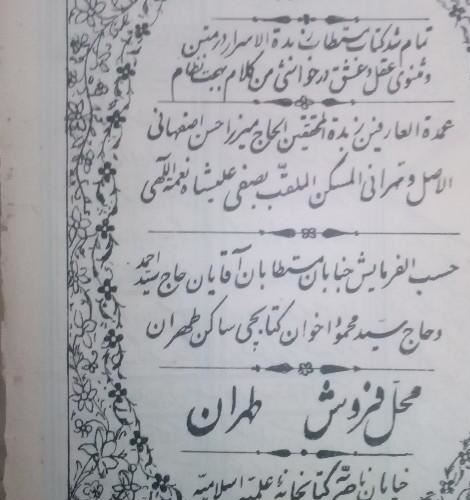 تمام شد کتاب مستطاب زبدة الاسرار در متن
و مثنوی عقل و عشق در حواشی من کلام بهجت نظام
عمدة العارفین زبدة المحققین الحاج میرزا حسن اصفهانی
الاصل و تهرانی المسکن الملقب بصفی علیشاه نعمة اللهی
حسب الفرمایش جنابان مستطابان آقایان حاج سید احمد
و حاج سید محمود اخوان کتابچی ساکن طهران
محل فروش طهران
خیابان ناصریه کتابخانه علمیه اسلامیه